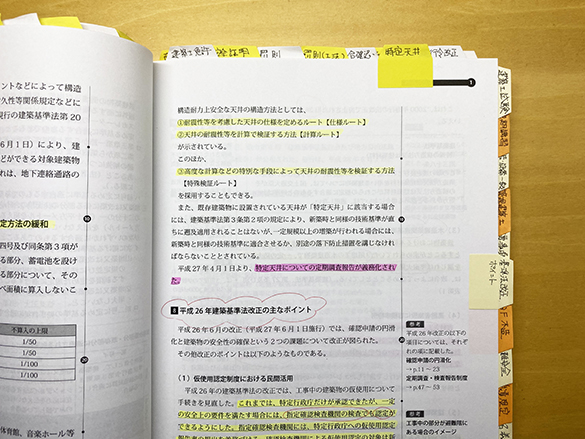 建築士免許
特定天井
1
ントなどによって構造
久性等関係規定などに
現行の建築基準法第 20
6月1日）により、建
どができる対象建築物
れば、地下連絡通路の
定方法の緩和
四号及び同条第3項が
る部分、蓄電池を設け
る部分について、その
べ面積に算入しないこ
不算入の上限
1/50
1/50
1/100
1/100
体育館、音楽ホール等
構造耐力上安全な天井の構造方法としては、
①耐震性等を考慮した天井の仕様を定めるルート【仕様ルート】
②天井の耐震性等を計算で検証する方法【計算ルート】
が示されている。
このほか、
③高度な計算などの特別な手段によって天井の耐震性等を検証する方法
【特殊検証ルート】
を採用することもできる。
また、既存建築物に設置されている天井が「特定天井」に該当する場合
には、建築基準法第3条第2項の規定により、新築時と同様の技術基準が直
ちに遡及適用されることはないが、一定規模以上の増築が行われる場合には、
新築時と同様の技術基準に適合させるか、別途の落下防止措置を講じなけれ
ばならないこととされている。
平成 27 年4月1日より、特定天井についての定期調査報告が義務化され
た。
8 平成 26 年建築基準法改正の主なポイント
平成 26 年6月の改正（平成 27 年6月1日施行）では、確認申請の円滑化
と建築物の安全性の確保という2つの課題について改正が図られた。
その他改正のポイントは以下のようなものである。
（1）仮使用認定制度における民間活用
平成 26 年の建築基準法の改正では、工事中の建築物の仮使用について
手続きを見直した。これまでは、特定行政庁だけが承認できたが、一定
の安全上の要件を満たす場合には、指定確認検査機関の検査でも認定が
できるようにした。指定確認検査機関には、特定行政庁への仮使用認定
参考
平成 26 年改正の以下の
項目については、それぞ
れの項に記載した。
確認申請の円滑化
→p.11 ～ 23
定期調査・検査報告制度
→p.53
参考
工事中の部分が避難限に
ある場合のイメージ